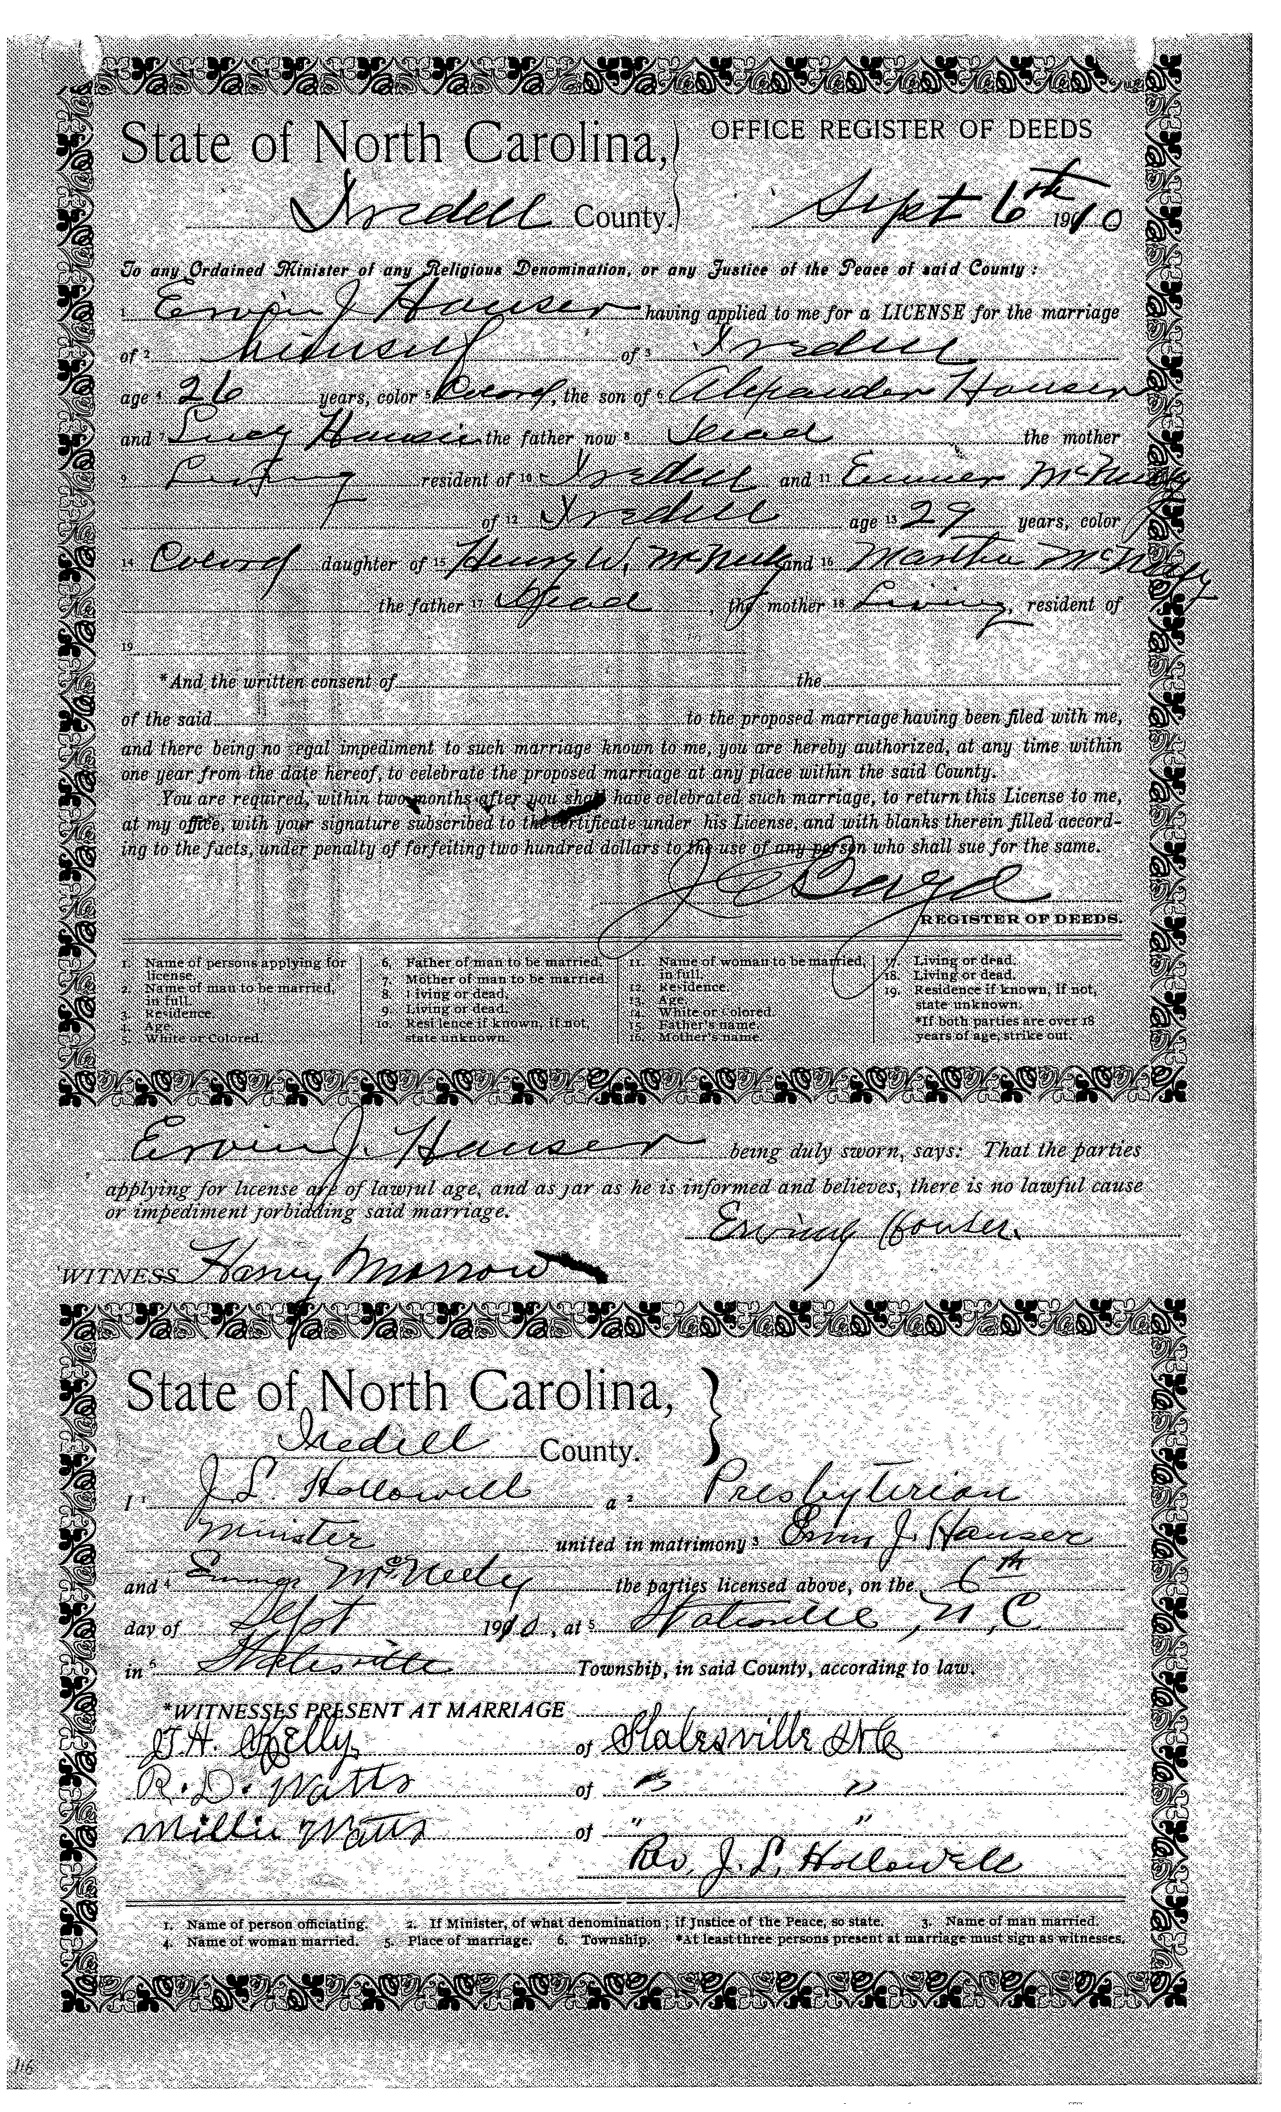 State of North Carolina,
OFFICE REGISTER OF DEEDS
Iredell County.
Sept 6th 1910
To any Ordained Minister of any Religious Denomination, or any Justice of the Peace of said County:
1 Ervin J Hauser having applied to me for a LICENSE for the marriage
of 2 himself of 3 Iredell
age 4 26 years, color 5 Colord, the son of 6 Alexander Hauser
and 7 Lucy Hauser the father now 8 dead the mother
9 Living resident of 10 Iredell and 11 Emmer McNeely
of 12 Iredell age 13 29 years, color
14 Colord daughter of 15 Henry W. McNeely and 16 Martha McNeely
the father 17 dead, the mother 18 Living, resident of
19
*And the written consent of the
of the said to the proposed marriage having been filed with me,
and there being no legal impediment to such marriage known to me, you are hereby authorized, at any time within
one year from the date hereof, to celebrate the proposed marriage at any place within the said County.
You are required, within two months after you shall have celebrated such marriage, to return this License to me,
at my office, with your signature subscribed to the certificate under his License, and with blanks therein filled accord-
ing to the facts, under penalty of forfeiting two hundred dollars to the use of any person who shall sue for the same.
J C Boyd
REGISTER OF DEEDS.
1. Name of persons applying for license.
2. Name of man to be married, in full.
3. Residence.
4. Age.
5. White or Colored.
6. Father of man to be married.
7. Mother of man to be married.
8. Living or dead.
9. Living or dead.
10. Residence if known, if not, state unknown.
11. Name of woman to be married, in full.
12. Residence.
13. Age.
14. White or Colored
15. Father's name.
16. Mother's name.
17. Living or dead.
18. Living or dead.
19. Residence if known, if not, state unknown.
*If both parties are over 18 years of age, strike out.
Ervin J. Hauser being duly sworn, says: That the parties
applying for license are of lawful age, and as far as he is informed and believes, there is no lawful cause
or impediment forbidding said marriage.
Houser.
WITNESS Harvy Morrow
State of North Carolina,
Iredell County.
I 1 J. L. Hollowell a 2 Presbyterian
Minister united in matrimony 3 Ervin J. Hauser
and 4 Emmer McNeely the parties licensed above, on the 6th
day of Sept 1910, at 5 Statesville, N, C.
in 6 Statesville Township, in said County, according to law.
*WITNESSES PRESENT AT MARRIAGE
J.H. Kelly of Statesville NC
R. D. Watts of " "
Millie Watts of " "
Rev. J. L. Hollowell
1. Name of person officiating. 2. If Minister, of what denomination; if Justice of the Peace, so state. 3. Name of man married.
4. Name of woman married. 5. Place of marriage. 6. Township. *At least three persons present at marriage must sign as witnesses.
116